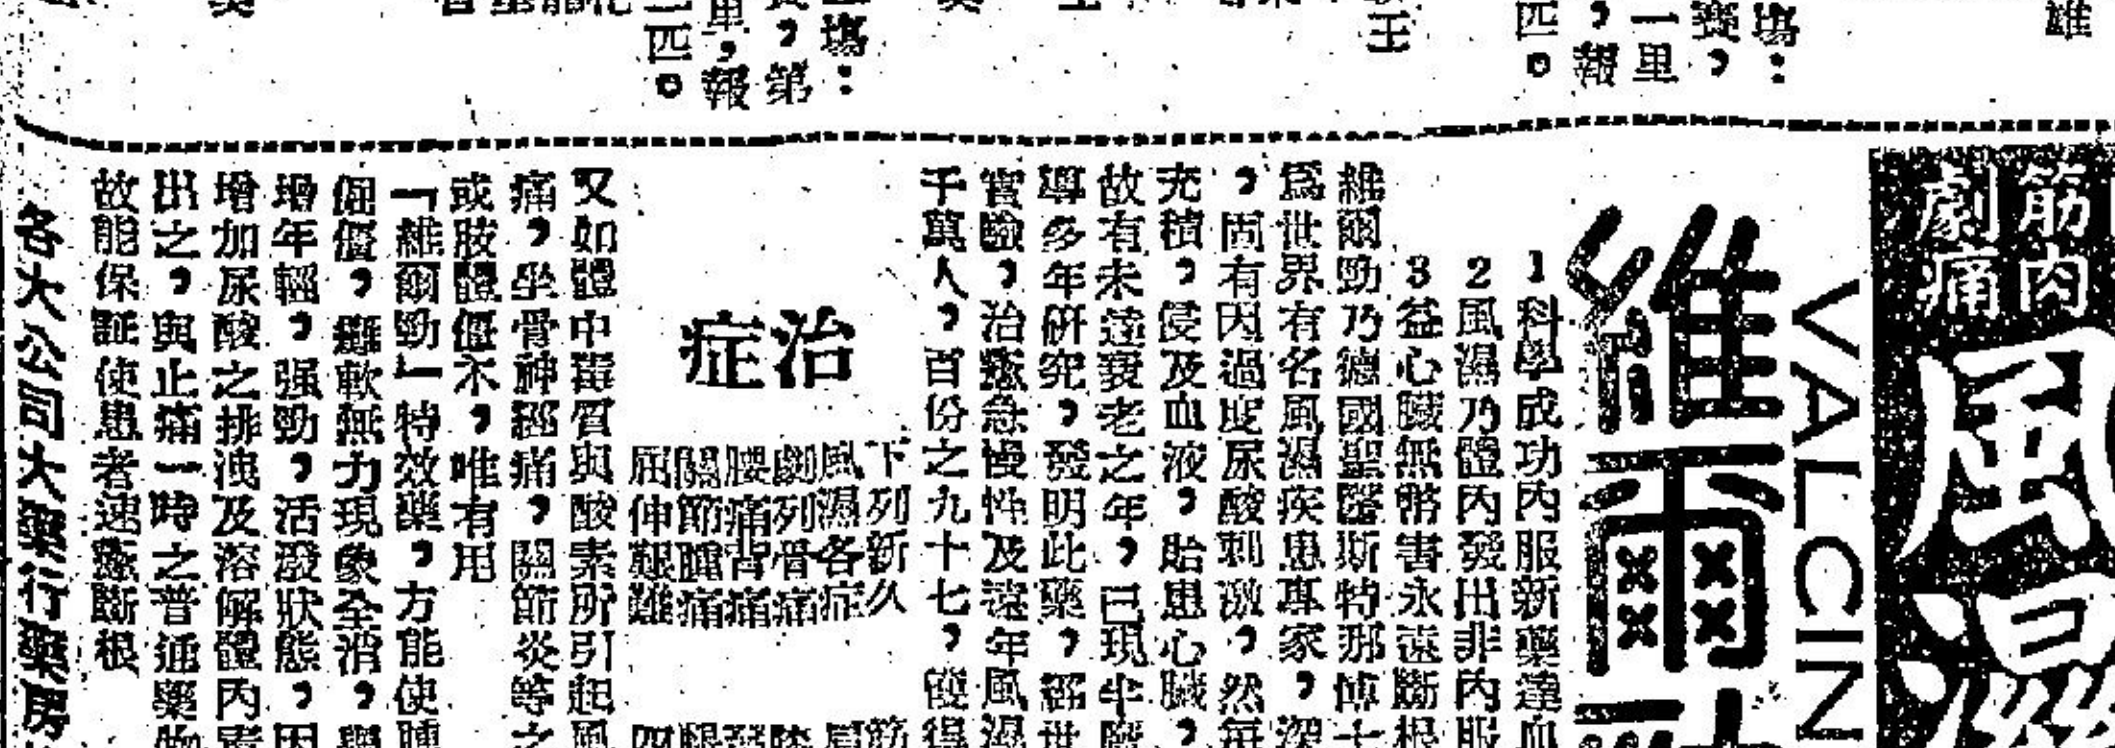 雄
塲：
賽，
一里
，報
匹。
王
塲：
賽，第
里，報
一匹。
筋肉
劇痛
風濕
VALCIN
維爾
1科學成功內服新藥達血
2風濕乃體內發出非內服
3益心臟無幣害永遠斷根
維爾勁乃德國聖醫斯特那傅士
爲世界有名風濕疾患專家，深
，固有因過度尿酸刺激，然每
充積，侵及血液，貽患心臟，
故有未達衰老之年，已現半
導多年研究，發明此藥，經世
實驗，治療急慢性及遠年風濕
千萬人，百份之九十七，獲得
治症
下列新久
風濕各症
劇列骨痛
腰痛背痛
關節腫痛
屈伸艱難
筋
肩
膝
腿
四
又如體中毒質與酸素所引起風
痛，坐骨神經痛，關節炎等之
或肢體僵木，唯有用
「維爾勁」特效藥，方能使腫
倔僵，癱軟無力現象全消，與
增年輕，强勁，活潑狀態，因
增加尿酸之排洩及溶解體內毒
出之，與止痛一時之普通藥物
故能保証使患者速癒斷根
各大公司大藥行藥房